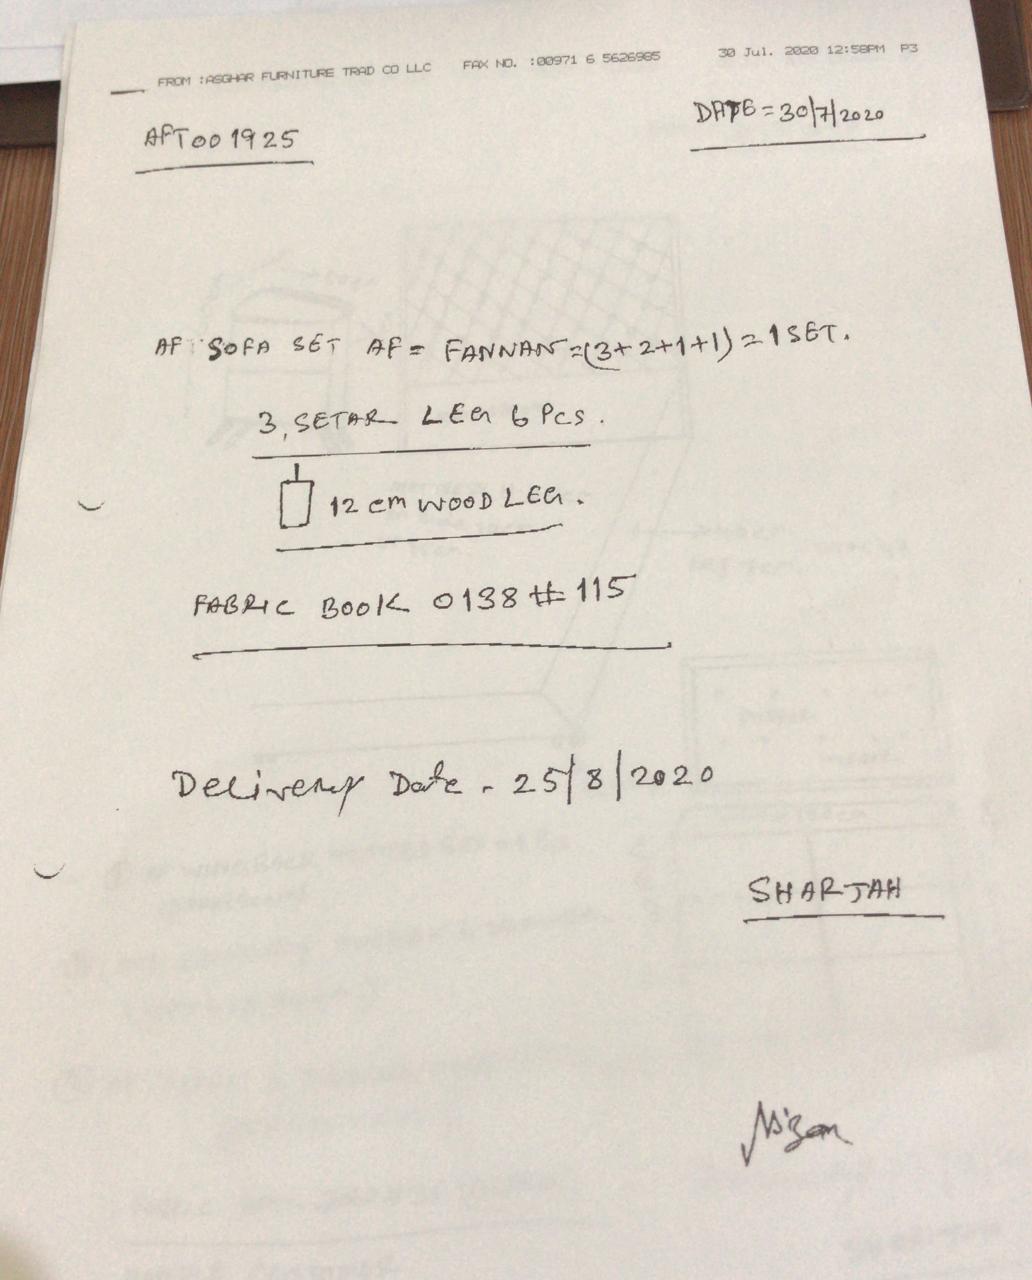 FROM :ASGHAR FURNITURE TRAD CO LLC FAX NO. :00971 6 5626985 30 Jul. 2020 12:58PM P3
AFT001925
DATE = 30/7/2020
AF SOFA SET AF = FANNAN =(3+2+1+1) = 1 SET.
3, SETAR LEG 6 Pcs.
12 cm WOOD LEG.
FABRIC BOOK 0138 # 115
Delivery Date - 25/8/2020
SHARJAH
Nizam